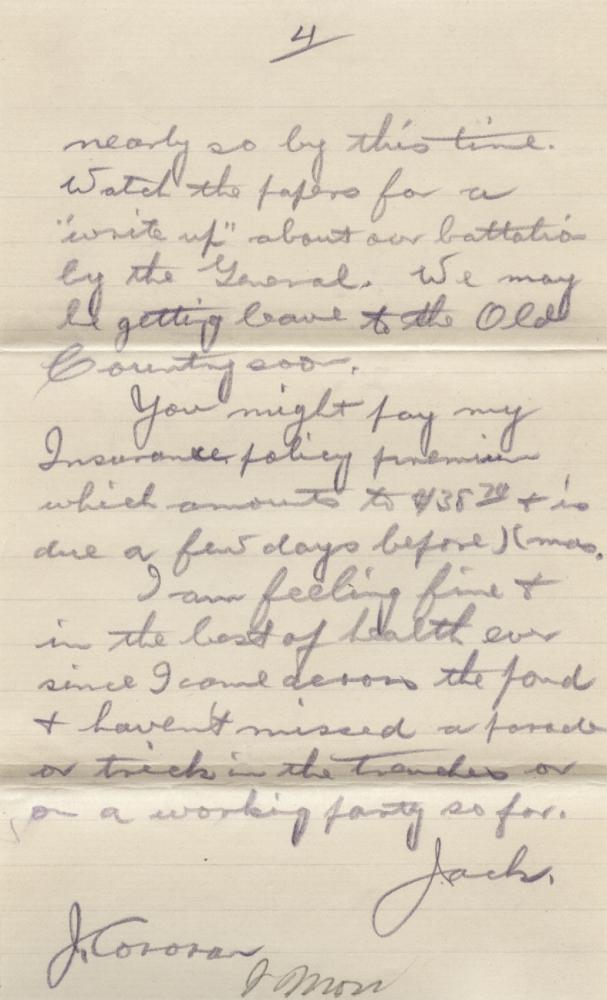 4
nearly so by this time.
Watch the papers for a
"write up" about our battalion
by the General. We may
be getting leave to the Old
Country soon.
You might pay my
Insurance policy premium
which amounts to $38 70 + is
due a few days before Xmas.
I am feeling fine +
in the best of health ever
since I came across the pond
+ haven't missed a parade
or trick in the trenches or
on a working party so far.
Jack.
J. Corovan